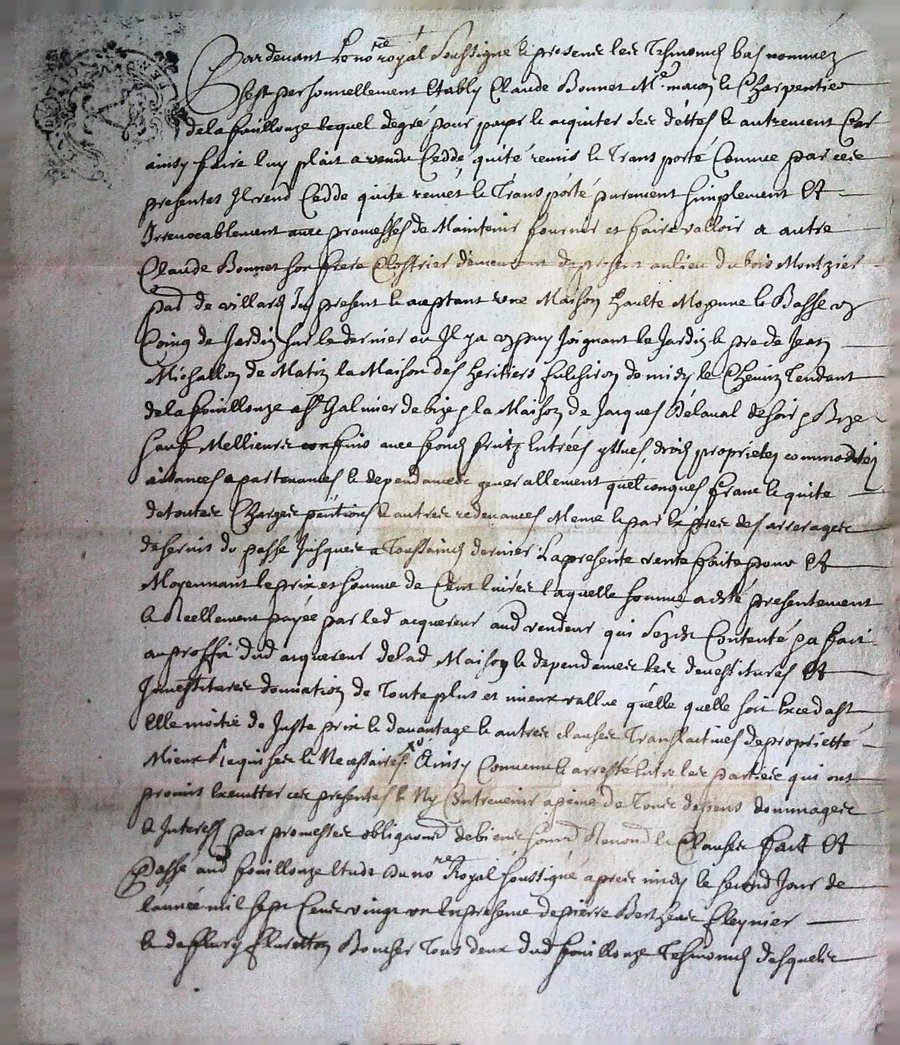 Pardevant Le no.re royal soussigné & presens les tesmoins bas nommez
s'est personnellement estably Claude Bonnet M.e masson & Charpentier
de la fouillouze lequel degré pour payer & acquiter ses dettes & autrement Car
ainsy faire luy plait a vendu Cedde quité remis & Transporté Comme par ces
presentes Il vend Cedde quite remét & Transporté purement simplement Et
Irrevocablement avec promesses de Maintenir fournir et faire valloir a autre
Claude Bonnet son frere Clostrier demeurant depresent au lieu du bois Montzier
de villard Icy present & aceptant une Maison haulte Moyenne & Basse
Coing de Jardin sur le dernier ou Il y a Joignant le Jardin & pre de Jean
Michallon de Matin la Maison des heritiers fulchiron de midy le Chemin Tendant
de la fouillouze a St Galmier de bize & la Maison de Jacques Delaval de soir & Bize
sauf Mellieurs confins avec fonds fruitz Entrées yssues droits proprietes commoditéz
aisances apartenances & dependances generallement quelconques franc & quite
de toutes Charges pentions & autres redevances Meme & par Exprés des arrerages
de servis du passé Jusques a Toussaincts dernier La presente vente faite pour Et
Moyennant le prix et somme de Cent Livres laquelle somme a esté presentement
& Reellement payée par led acquereur aud vendeur qui s'en Contenté pa fait
au proffit dud acquereur de lad Maison & dependances les devestitures Et
Jnvestitures donnation de Toute plus et mieux vallue quélle quelle soit Exceda st
Elle moitié du Juste prix & davantage & autres clauses Translatives de proprietté
Mieux Requises & Necessaires Ainsy Convenu & arresté Entre les parties qui ont
promis Executter ces presentes & Ny Contrevenir a peine de Tous depens dommages
& Interests par promesses obliga.ons de biens soum.ons Renon.ons & Clauses fait Et
Passé aud fouillouze Etude du no.re Royal soussigné apres midy le second Jour de
l'année mil sept Cens vingt un En presence de pierre Bertheas
& de fleury fleuretton Boucher Tous deux dud fouillouze Tesmoins desquels